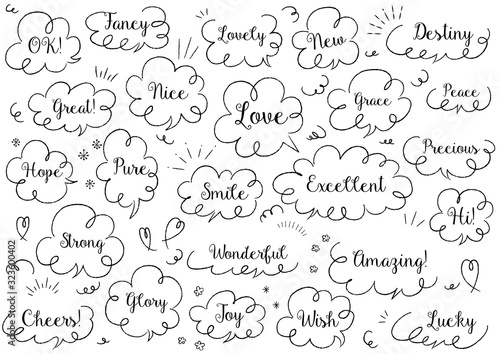 OK!
Fancy
Lovely
New
Destiny
Great!
Nice
Love
Grace
Peace
Hope
Pure
Smile
Excellent
Precious
Hi!
Strong
Wonderful
Amazing!
Cheers!
Glory
Joy
Wish
Lucky
323900402